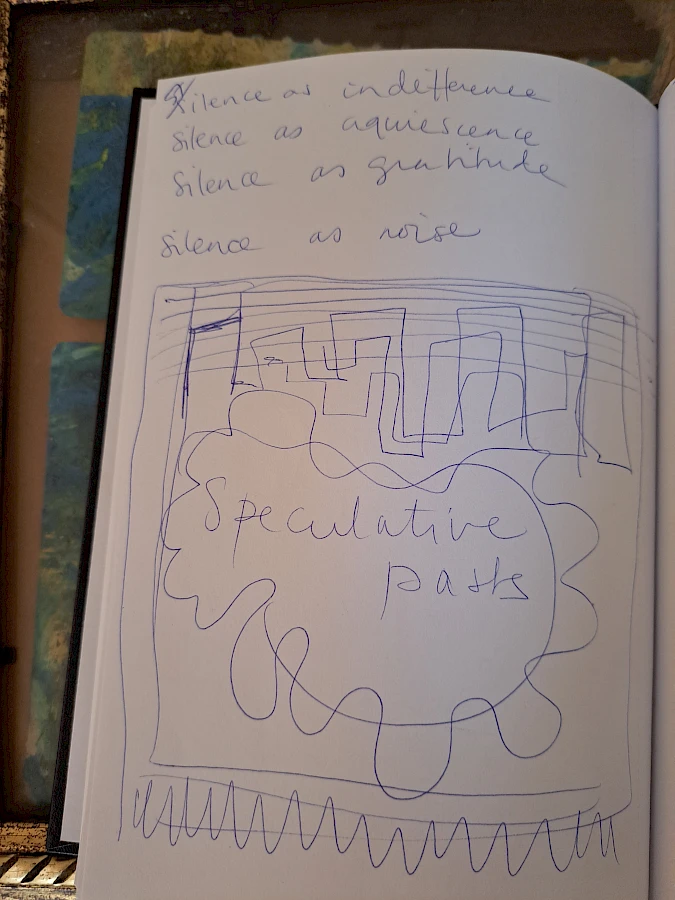 Silence as indifference
Silence as aquiescence
Silence as gratitude
Silence as noise
Speculative
pasts